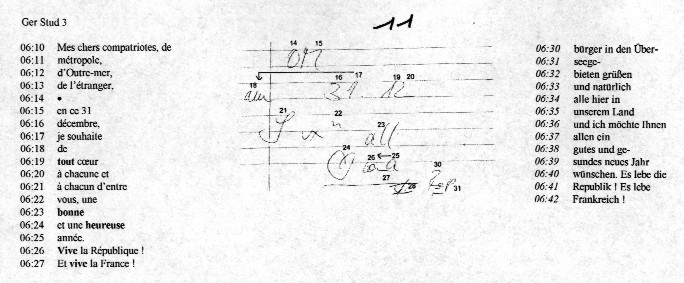 Ger Stud 3
11
06:10 Mes chers compatriotes, de
06:11 métropole,
06:12 d'Outre-mer,
06:13 de l'étranger,
06:14 •
06:15 en ce 31
06:16 décembre,
06:17 je souhaite
06:18 de
06:19 tout cœur
06:20 à chacune et
06:21 à chacun d'entre
06:22 vous, une
06:23 bonne
06:24 et une heureuse
06:25 année.
06:26 Vive la République !
06:27 Et vive la France !
14 15
16 17 19 20
18
31. 12
21 22
23
all
24
26 25
27
28
30
31
06:30 bürger in den Über-
06:31 seege-
06:32 bieten grüßen
06:33 und natürlich
06:34 alle hier in
06:35 unserem Land
06:36 und ich möchte Ihnen
06:37 allen ein
06:38 gutes und ge-
06:39 sundes neues Jahr
06:40 wünschen. Es lebe die
06:41 Republik ! Es lebe
06:42 Frankreich !